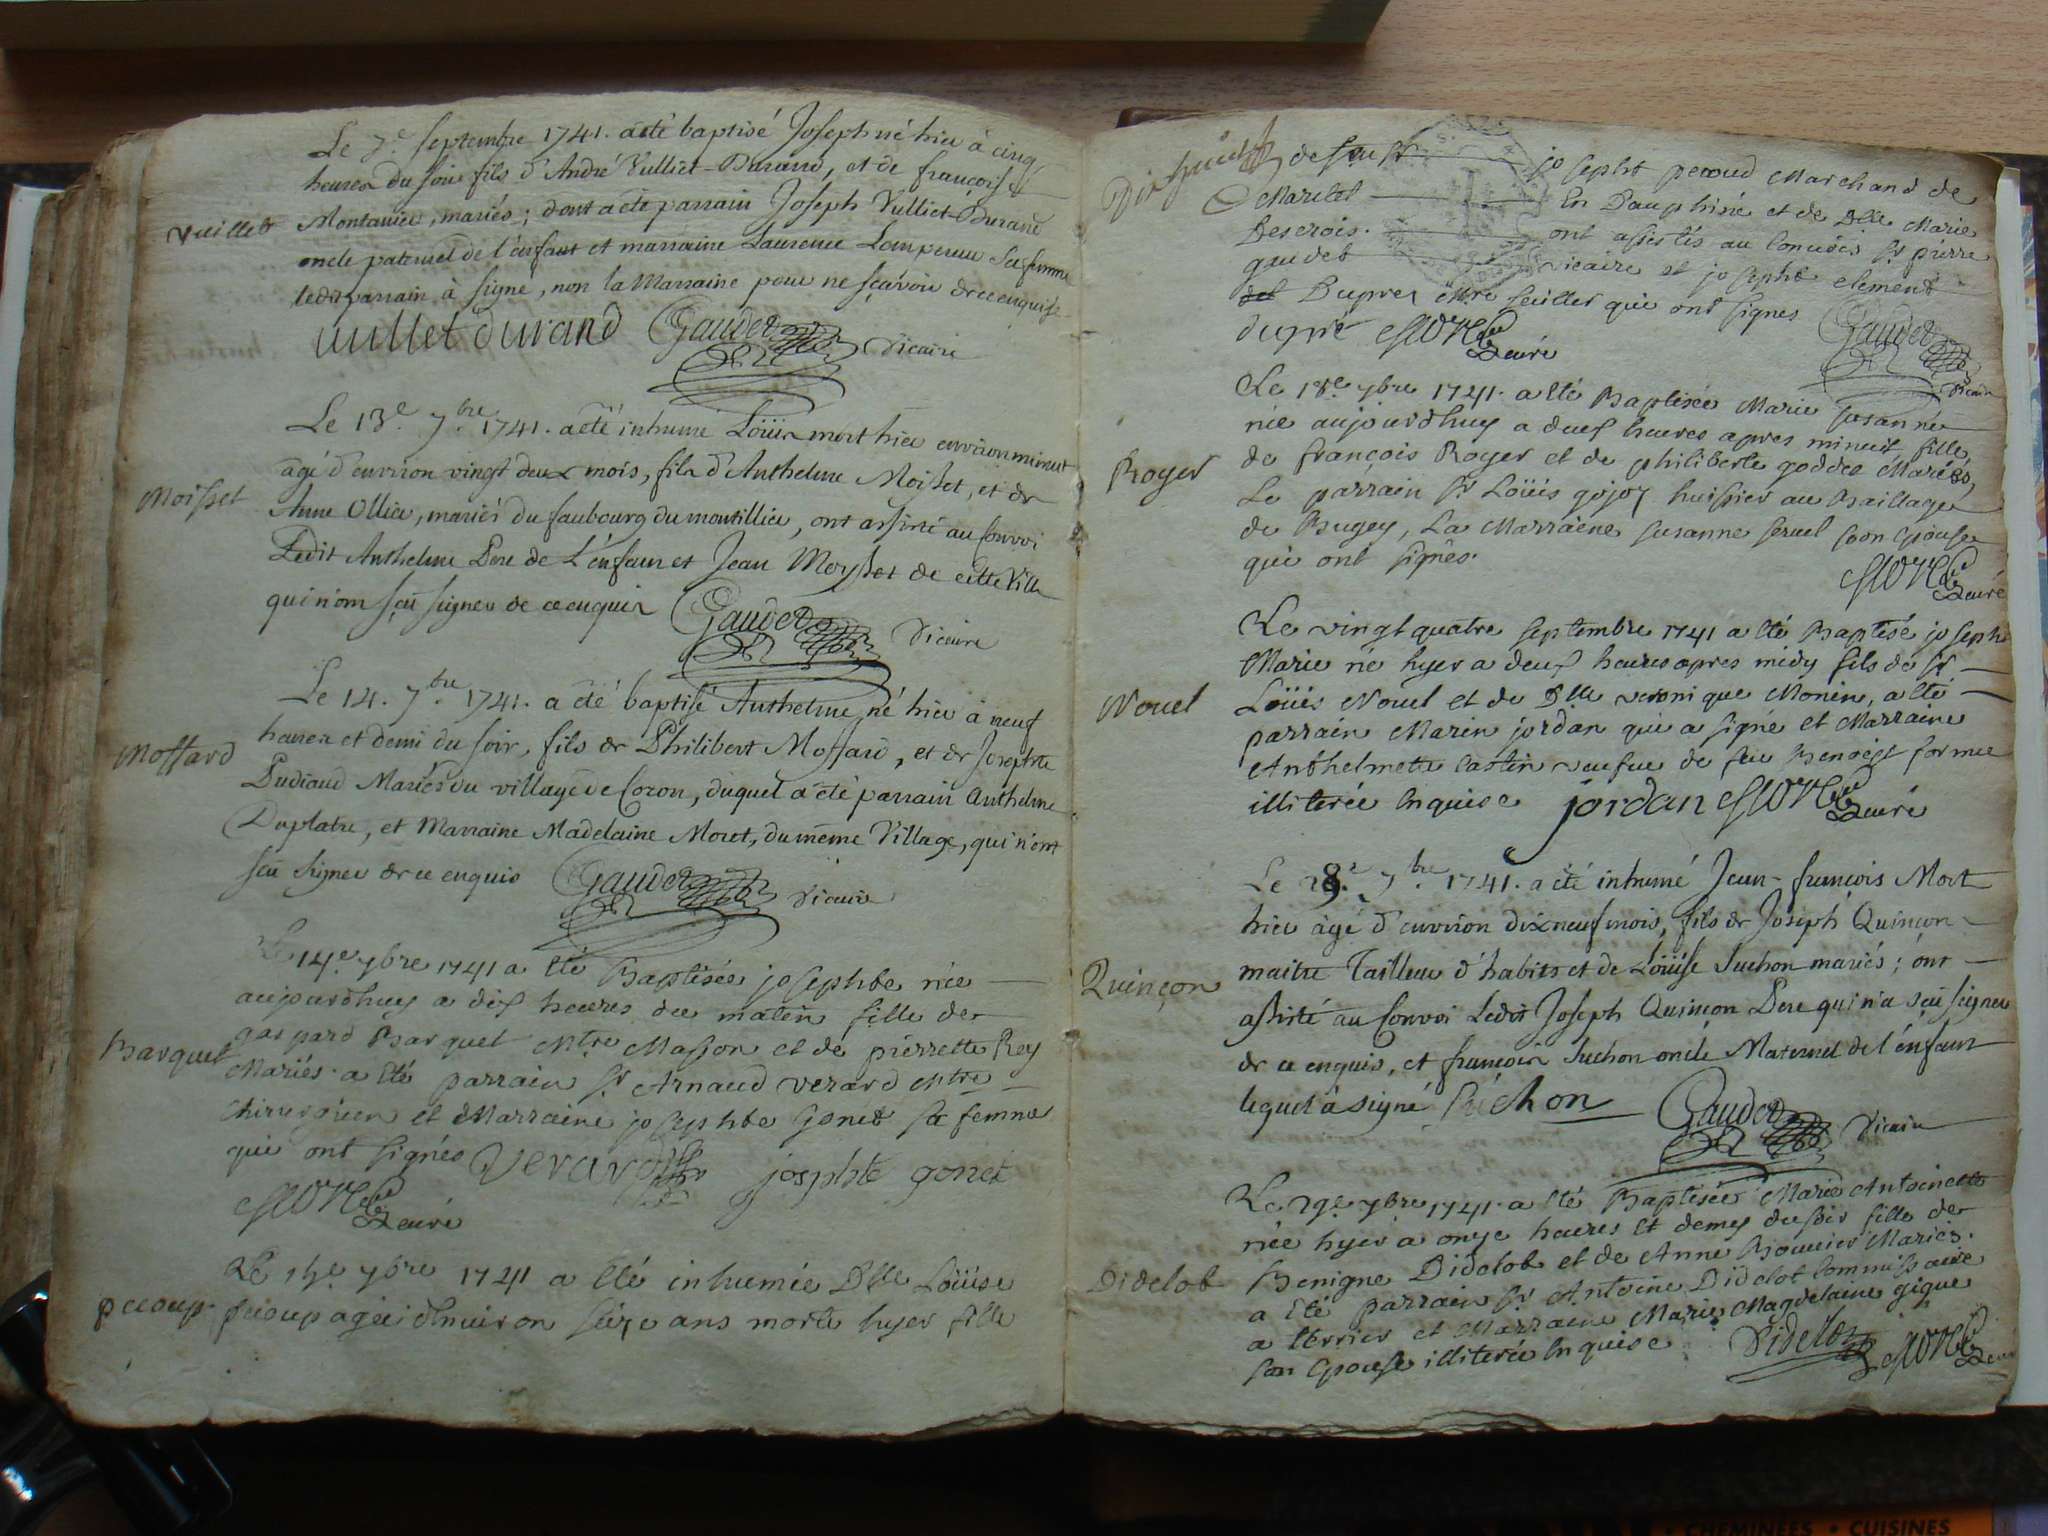 Le 7e septembre 1741. a été baptisé Joseph né hier à cinq
heures du soir fils d'André Vulliet-Durand, et de françoise
Vuillet
Montanier, mariés; dont a été parrain Joseph Vulliet-Durand
oncle paternel de l'enfant et marraine Laurence Lempereur sa femme
ledit parrain à signé, non la Marraine pour ne sçavoir de ce enquise
vuillet durand Gaudet Vicaire
Le 13e 7bre 1741. a été inhumé Loüis mort hier environ minuit
âgé d'environ vingt deux mois, fils d'Anthelme Moisset, et de
Moisset
Anne Ollier, mariés du faubourg du montillier, ont assisté au Convoi
Ledit Anthelme Pere de L'enfant et Jean Moysset de cette Ville
qui n'ont sçü signer de ce enquis Gaudet Vicaire
Le 14. 7bre 1741. a été baptisé Anthelme né hier à neuf
heures et demi du soir, fils de Philibert Moffard, et de Josephte
Moffard
Pudraud Mariés du village de Coron, duquel a été parrain Anthelme
Duplatre, et Marraine Madelaine Moret, du même Village, qui n'ont
sçü signer de ce enquis Gaudet Vicaire
Le 14e 7bre 1741 a été Baptisée josephte née
aujourdhuy a dix heures du matin fille de
gaspard Barquet Mtre Masson et de pierrette Rey
Barquet
Mariés. a été parrain Sr Arnaud verard Mtre
chirurgien et Marraine josephte Gonet sa femme
qui ont signés Verard josphte gonet
curé
Le 15e 7bre 1741 a été inhumée Dlle Loüise
pecoup
pecoup agée d'environ seize ans morte hyer fille
Dix huict
de feu Sr josepht pecoud Marchand de
Maretel En Dauphiné et de Dlle Marie
Descrois. ont assistés au Convois Sr pierre
gaudet vicaire et josepht clement
Duprez Mtre seillier qui ont signés
dupré curé Gaudet Vicaire
Le 18e 7bre 1741. a été Baptisée Marie susanne
née aujourdhuy a deux heures apres minuit fille
de françois Roger et de philiberte goddee Mariés,
Roger
Le parrain Sr Loüis gojoz huissier au Baillage
de Bugey, La Marraine susanne seruel son Epouse
qui ont signés.
curé
Le vingt quatre septembre 1741 a été Baptisé joseph
Marie né hyer a deux heures apres midy fils de Sr
Nouel
Loüis Nouel et de Dlle veronique Monin, a été
parrain Marin jordan qui a signé et Marraine
Anthelmette Castin veufue de feu Benoigt fornier
illiterée Enquise jordan curé
Le 28e 7bre 1741. a été inhumé Jean-françois Mort
hier âgé d'environ dix neuf mois, fils de Joseph Quinçon
Quinçon
maitre Tailleur d'habits et de Loüise Suchon mariés; ont
assisté au Convoi Ledit Joseph Quinçon Pere qui n'a sçü signer
de ce enquis, et françois Suchon oncle Maternel de l'enfant
lequel à signé Suchon Gaudet Vicaire
Le 29e 7bre 1741. a été Baptisée Marie Antoinette
née hyer a onze heures et demy du soir fille de
Didelot
Benigne Didelot et de Anne Bouvier Mariés.
a été parrain Sr Antoine Didelot Commissaire
a terrier et Marraine Marie Magdelaine gigue
son Epouse illiterée Enquise Didelot curé
CHEMINÉES • CUISINES